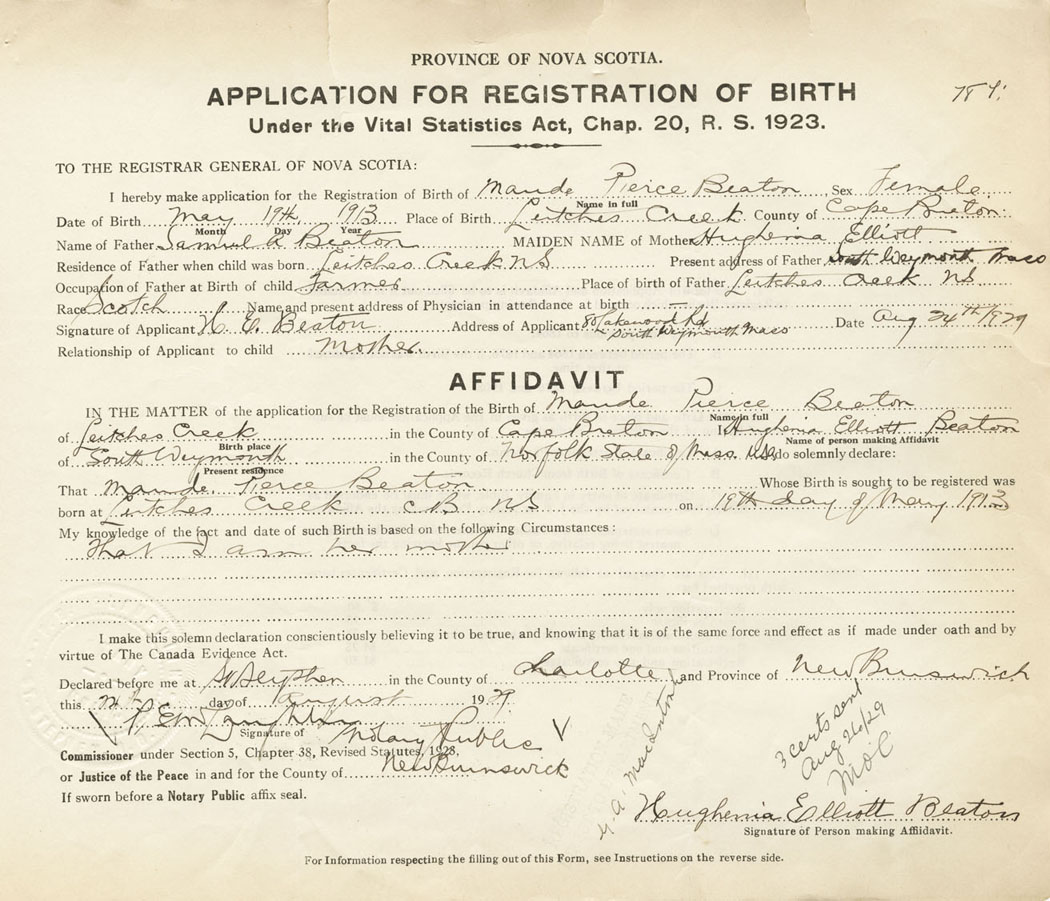 PROVINCE OF NOVA SCOTIA.
APPLICATION FOR REGISTRATION OF BIRTH
Under the Vital Statistics Act, Chap. 20, R. S. 1923.
TO THE REGISTRAR GENERAL OF NOVA SCOTIA:
I hereby make application for the Registration of Birth of Maude Pierce Beaton Sex Female
Name in full
Date of Birth May 19th 1913 Place of Birth Leitches Creek County of Cape Breton
Month Day Year
Name of Father Samuel A Beaton MAIDEN NAME of Mother Hughenia Elliott
Residence of Father when child was born Leitches Creek NS Present address of Father South Weymouth Mass
Occupation of Father at Birth of child farmer Place of birth of Father Leitches Creek NS
Race Scotch Name and present address of Physician in attendance at birth —
Signature of Applicant H. E. Beaton Address of Applicant 80 Lakewood Rd South Weymouth Mass Date Aug 24th/1929
Relationship of Applicant to child Mother
AFFIDAVIT
IN THE MATTER of the application for the Registration of the Birth of Maude Pierce Beaton
Name in full
of Leitches Creek in the County of Cape Breton I Hughenia Elliott Beaton
Birth place Name of person making Affidavit
of South Weymouth in the County of Norfolk State of Mass. USA do solemnly declare:
Present residence
That Maude Pierce Beaton Whose Birth is sought to be registered was
born at Leitches Creek CB NS on 19th day of May 1913
My knowledge of the fact and date of such Birth is based on the following Circumstances :
That I am her mother
I make this solemn declaration conscientiously believing it to be true, and knowing that it is of the same force and effect as if made under oath and by
virtue of The Canada Evidence Act.
Declared before me at St Stephen in the County of Charlotte and Province of New Brunswick
this day of August 1929
Signature of Notary Public
Commissioner under Section 5, Chapter 38, Revised Statutes, 1923,
or Justice of the Peace in and for the County of New Brunswick
If sworn before a Notary Public affix seal.
3 certs sent
Aug 26/29
Hughenia Elliott Beaton
Signature of Person making Affidavit.
For Information respecting the filling out of this Form, see Instructions on the reverse side.